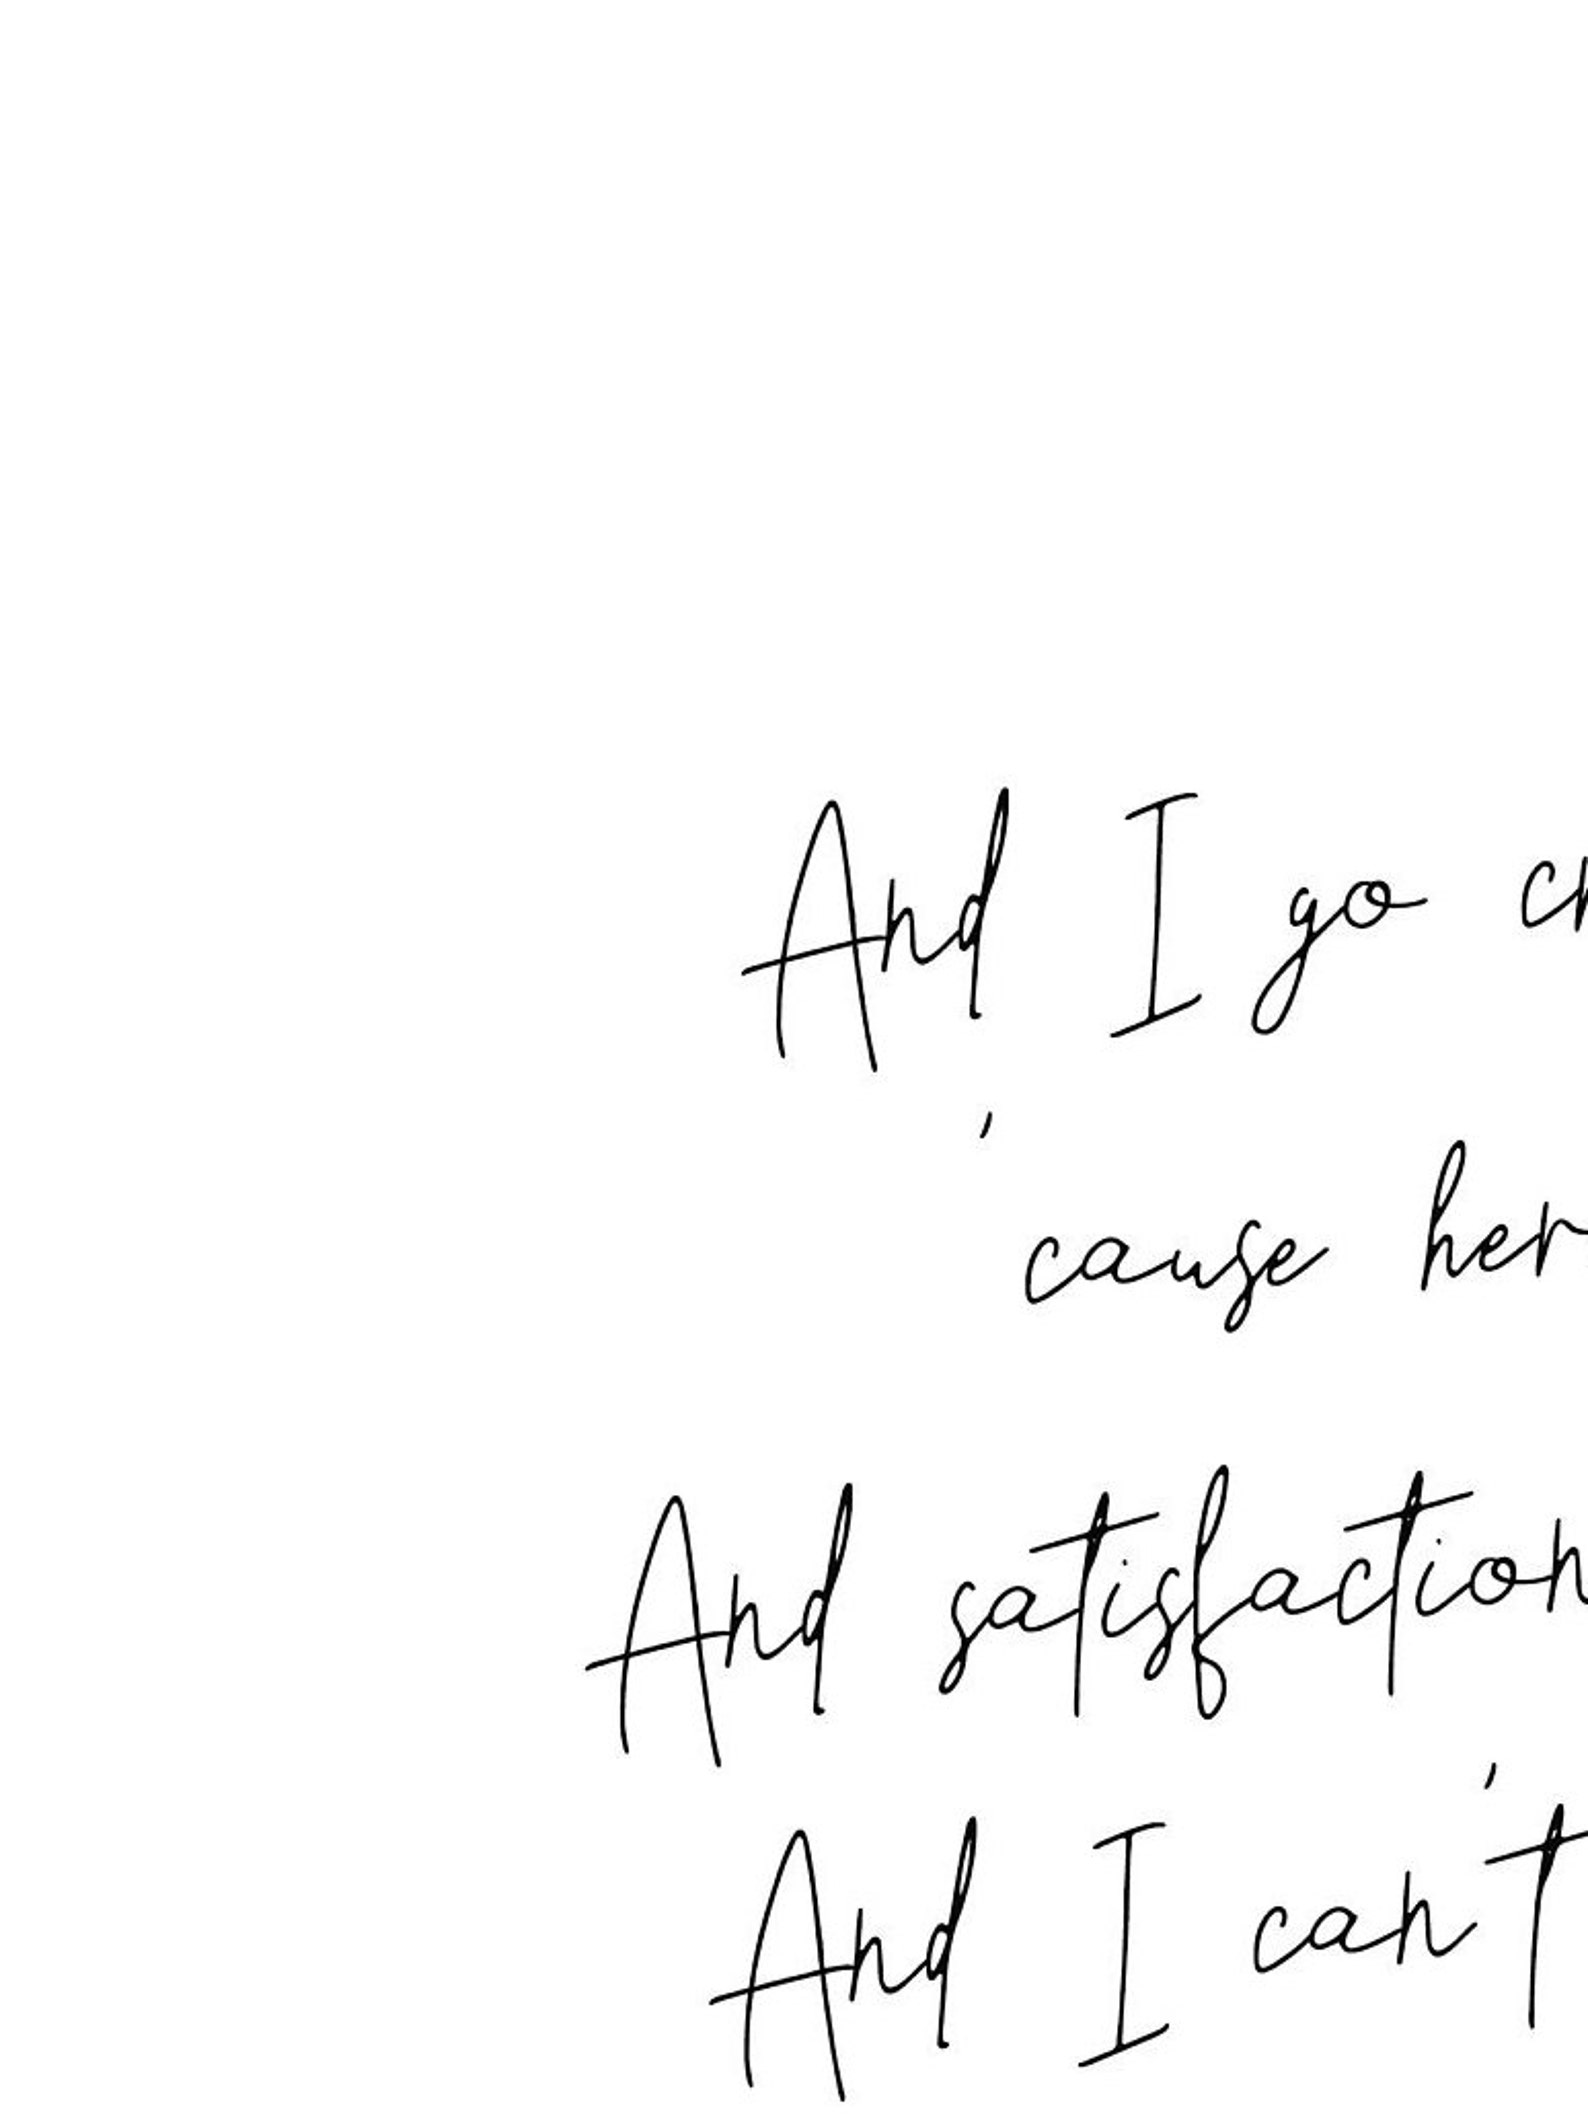 And I go cr
'cause her
And satisfaction
And I can't